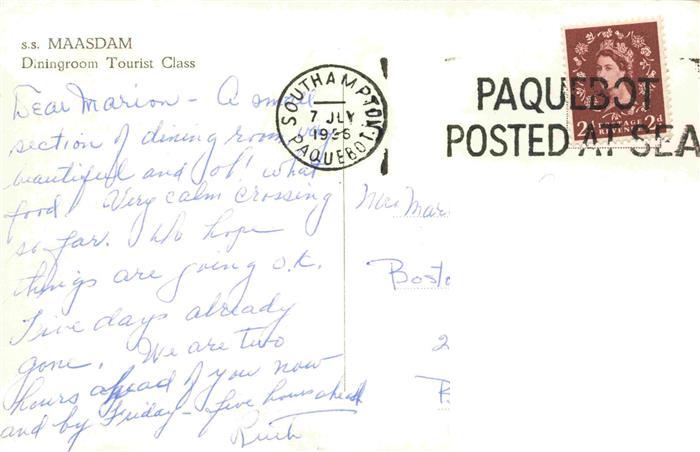 s.s. MAASDAM
Diningroom Tourist Class
Dear Marion - A small
section of dining room very
beautiful and oh! what
food! Very calm crossing
so far. Do hope
things are going o.k.
Five days already
gone. We are two
hours ahead of you now
and by Friday - five hours ahead
Ruth
SOUTHAMPTON
7 JLY
1956
PAQUEBOT
PAQUEBOT
POSTED AT SEA
2d POSTAGE 2d
Mar
Bosto
2